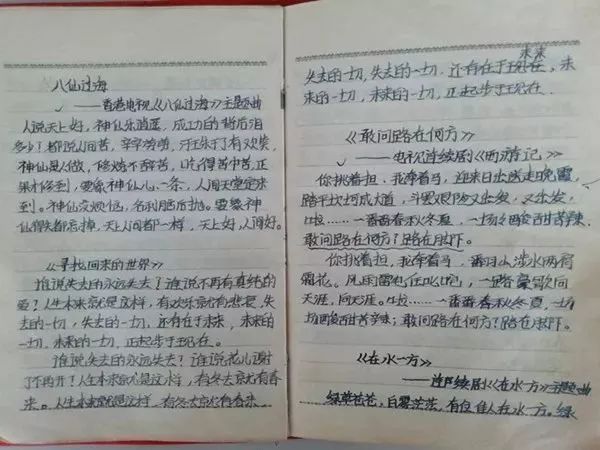 八仙过海
——香港电视《八仙过海》主题曲
人说天上好,神仙乐逍遥,成功的背后泪
多少!都说人间苦,辛辛劳劳,汗珠干了有欢笑,
神仙是人做,修炼不辞苦,吃得苦中苦,正
果修到,要像神仙儿一条,人间天堂定来
到。神仙没烦恼,名利脑后抛。要像神
仙得失都忘掉,天上人间都一样,天上好,人间好。
《寻找回来的世界》
谁说失去的永远失去?谁说不再有真纯的
爱?人生本来就是这样,有欢乐就有悲哀,失
去的一切,失去的一切,还有存于未来,未来的
一切,未来的一切,正起步于现在。
谁说失去的永远失去?谁说花儿谢
了不再开?人生本来就是这样,有冬去就有春
来。人生本来就是这样,有冬去就有春来
未来
失去的一切,失去的一切,还有存于现在,未
来的一切,未来的一切,正起步于现在.
《敢问路在何方》
——电视连续剧《西游记》
你挑着担,我牵着马,迎来日出送走晚霞,
踏平坎坷成大道,斗罢艰险又出发,又出发,
啦……一番番春秋冬夏,一场场酸甜苦辣,
敢问路在何方?路在脚下。
你挑着担,我牵着马,翻山涉水两肩
霜花。风雨雷电任叱咤,一路豪歌向
天涯,向天涯。啦……一番番春秋冬夏,一场
场酸甜苦辣;敢问路在何方?路在脚下。
《在水一方》
——连续剧《在水一方》主题曲
绿草苍苍,白雾茫茫,有位佳人在水一方。绿